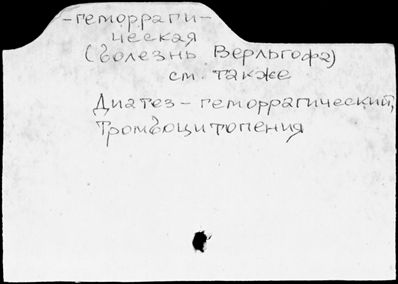 -геморраги-
ческая
(болезнь Верльгофа)
см. также
Диатез - геморрагический,
Тромбоцитопения